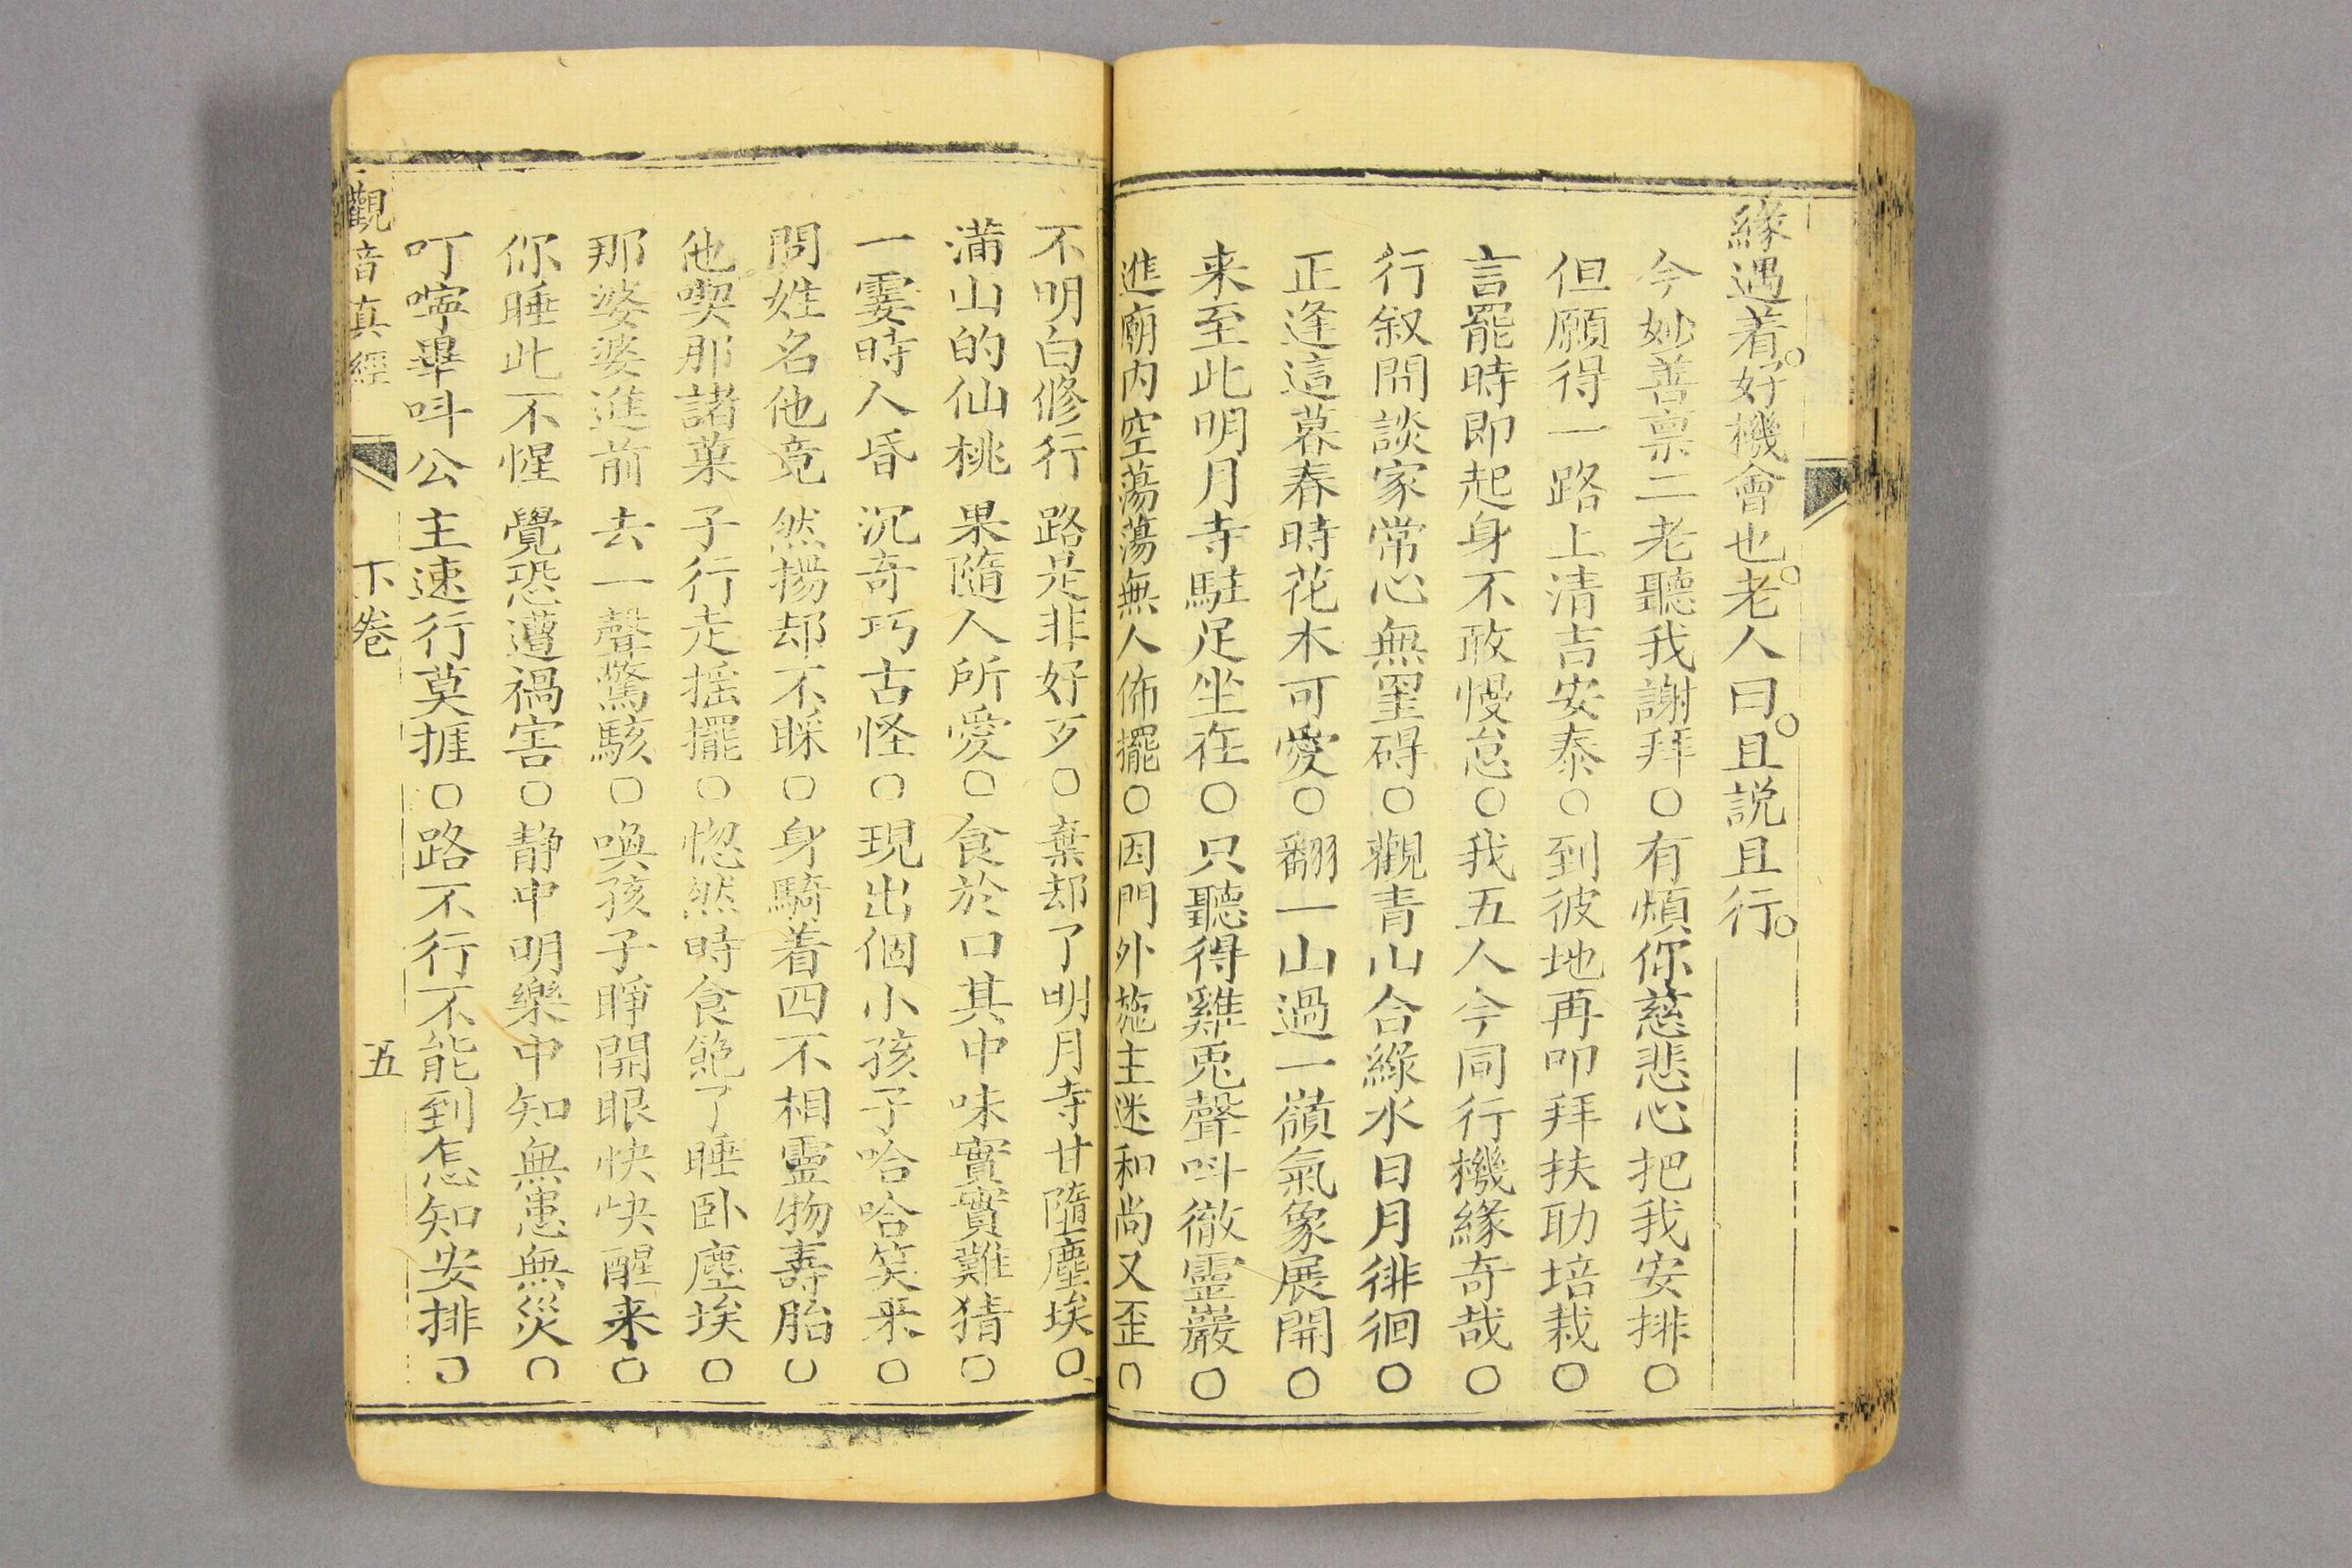 緣遇着。好機會也。老人曰。且説且行。
今妙善禀二老聽我謝拜○有煩你慈悲心把我安排○
但願得一路上清吉安泰○到彼地再叩拜扶助培栽○
言罷時即起身不敢慢怠○我五人今同行機緣奇哉○
行叙問談家常心無罣碍○觀青山合綠水日月徘徊○
正逢這暮春時花木可愛○翻一山過一嶺氣象展開○
来至此明月寺駐足坐在○只聽得雞兎聲呌徹靈巖○
進廟内空蕩蕩無人佈擺○因門外施主迷和尚又歪○
不明白修行路是非好歹○棄却了明月寺甘隨塵埃○
滿山的仙桃果隨人所愛○食於口其中味實實難猜○
一霎時人昏沉奇巧古怪○現出個小孩子哈哈笑来○
問姓名他竟然揚却不睬○身騎着四不相靈物壽胎○
他喫那諸菓子行走摇擺○惚然時食飽了睡卧塵埃○
那婆婆進前去一聲驚駭○喚孩子睜開眼快快醒来○
你睡此不惺覺恐遭禍害○静中明樂中知無患無災○
叮嚀畢呌公主速行莫捱○路不行不能到怎知安排○
觀音真經 下卷 五